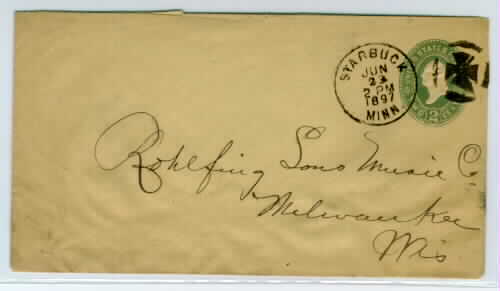 STARBUCK
JUN
23
2 PM
1897
MINN.
STATES
Rohlfing Sons Music Co
Milwaukee
Wis